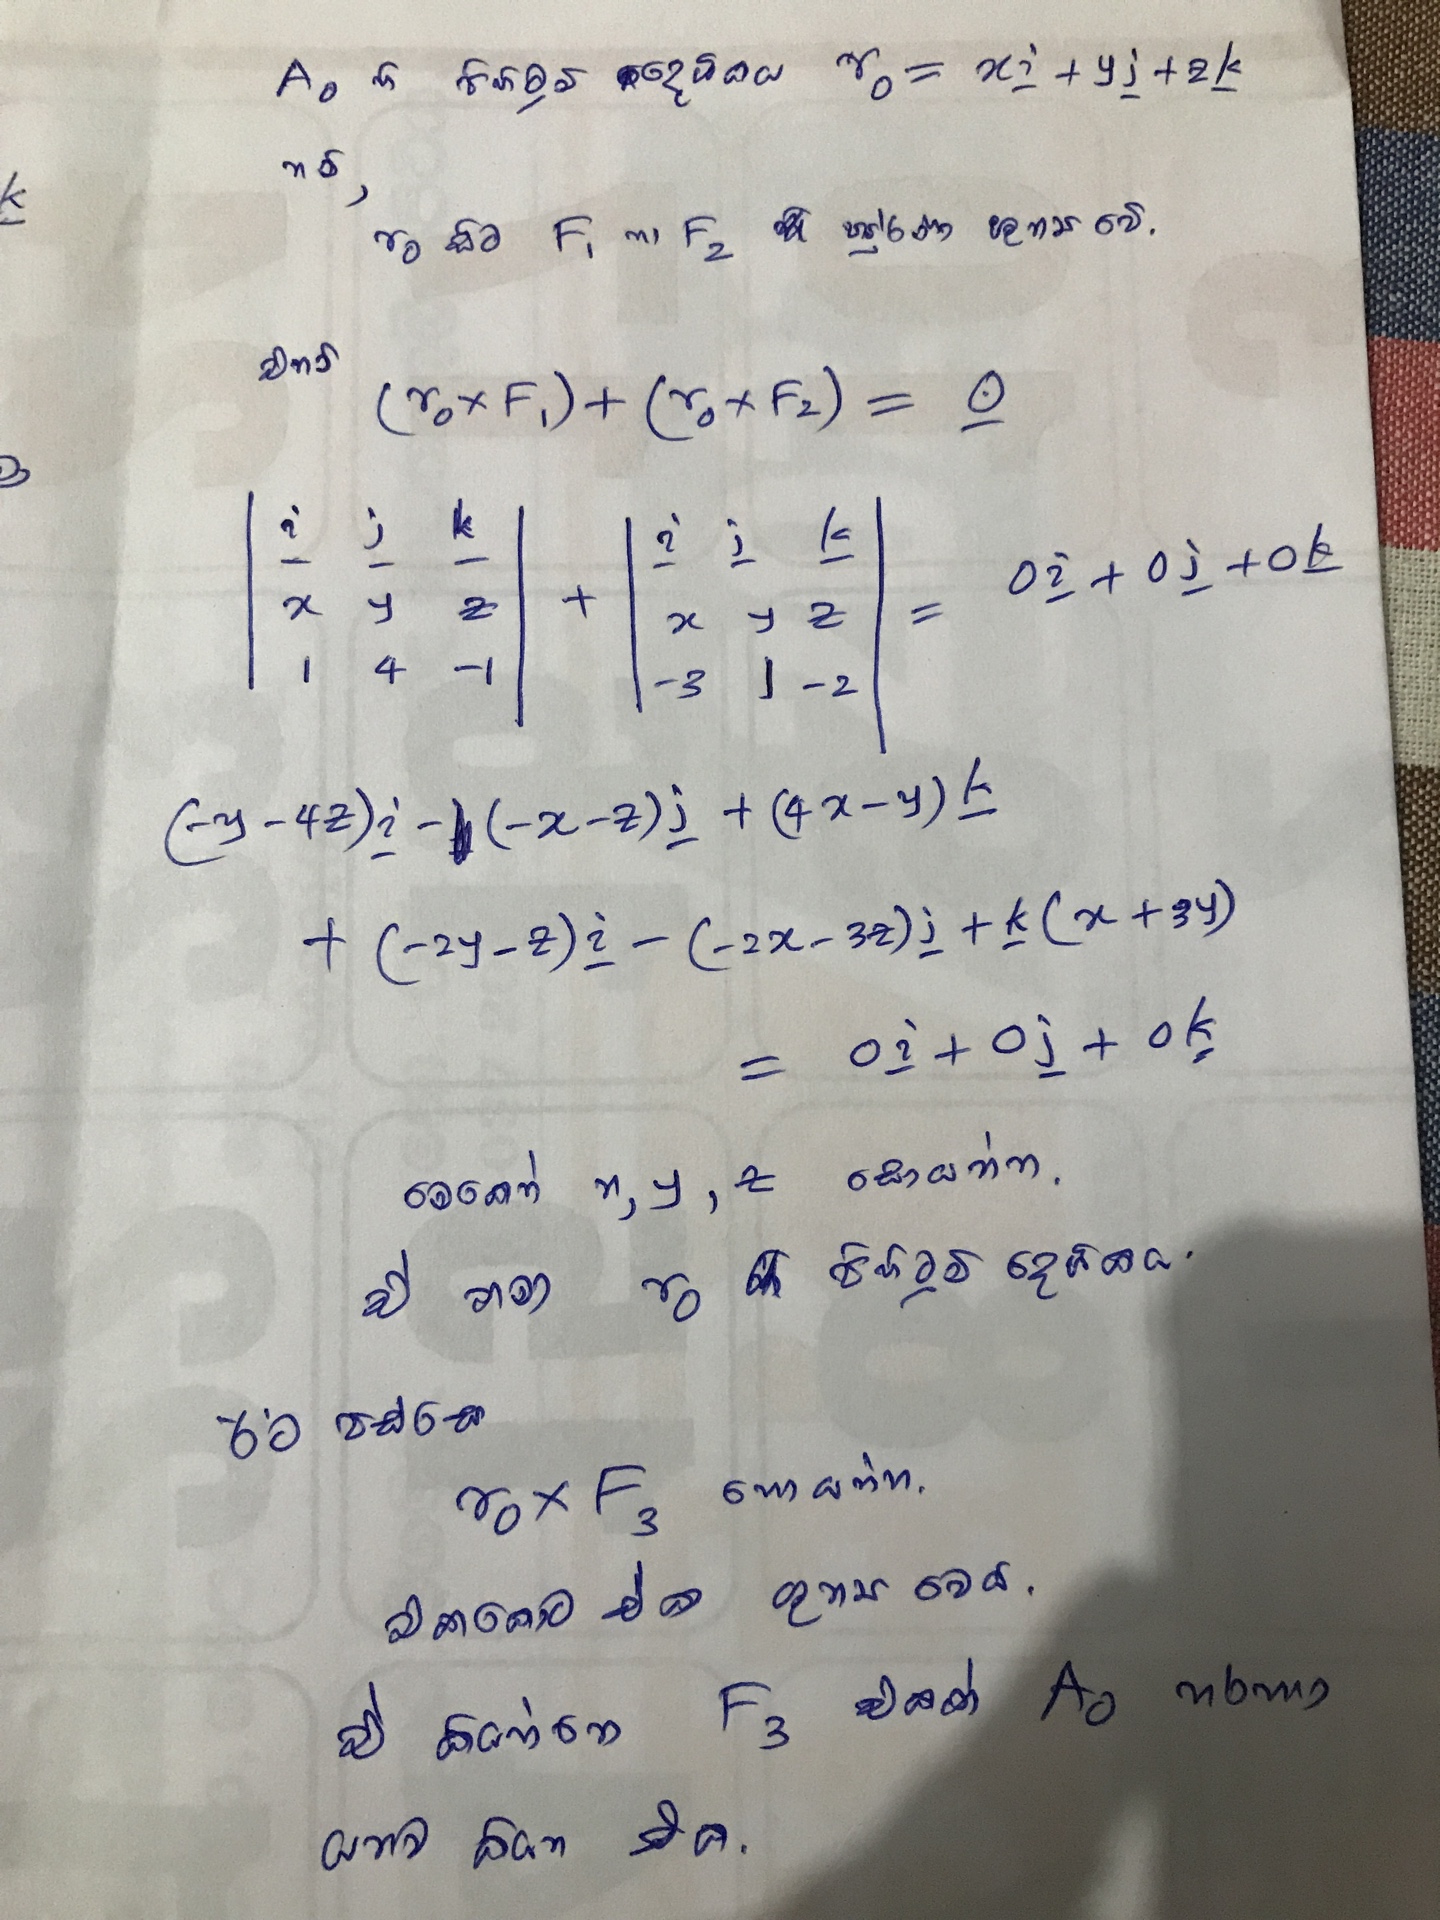 A₀ හි පිහිටුම් දෛශිකය r₀ = xi + yj + zk
නම්,
r₀ සිට F₁ හා F₂ හි ඝූර්ණ ශුන්‍ය වේ.
එනම්
(r₀ × F₁) + (r₀ × F₂) = 0
| i j k | + | i j k | = 0i + 0j + 0k
| x y z | | x y z |
| 1 4 -1 | | -3 1 -2 |
(-y - 4z)i - (-x - z)j + (4x - y)k
+ (-2y - z)i - (-2x - 3z)j + k(x + 3y)
= 0i + 0j + 0k
මෙගෙන් x, y, z සොයන්න.
ඒ තමා r₀ හි පිහිටුම් දෛශිකය.
ඊට පස්සෙ
r₀ × F₃ හොයන්න.
එතකොට ඒක ශුන්‍ය වෙයි.
ඒ කියන්නෙ F₃ එකත් A₀ හරහා
යනව කියන එක.
k